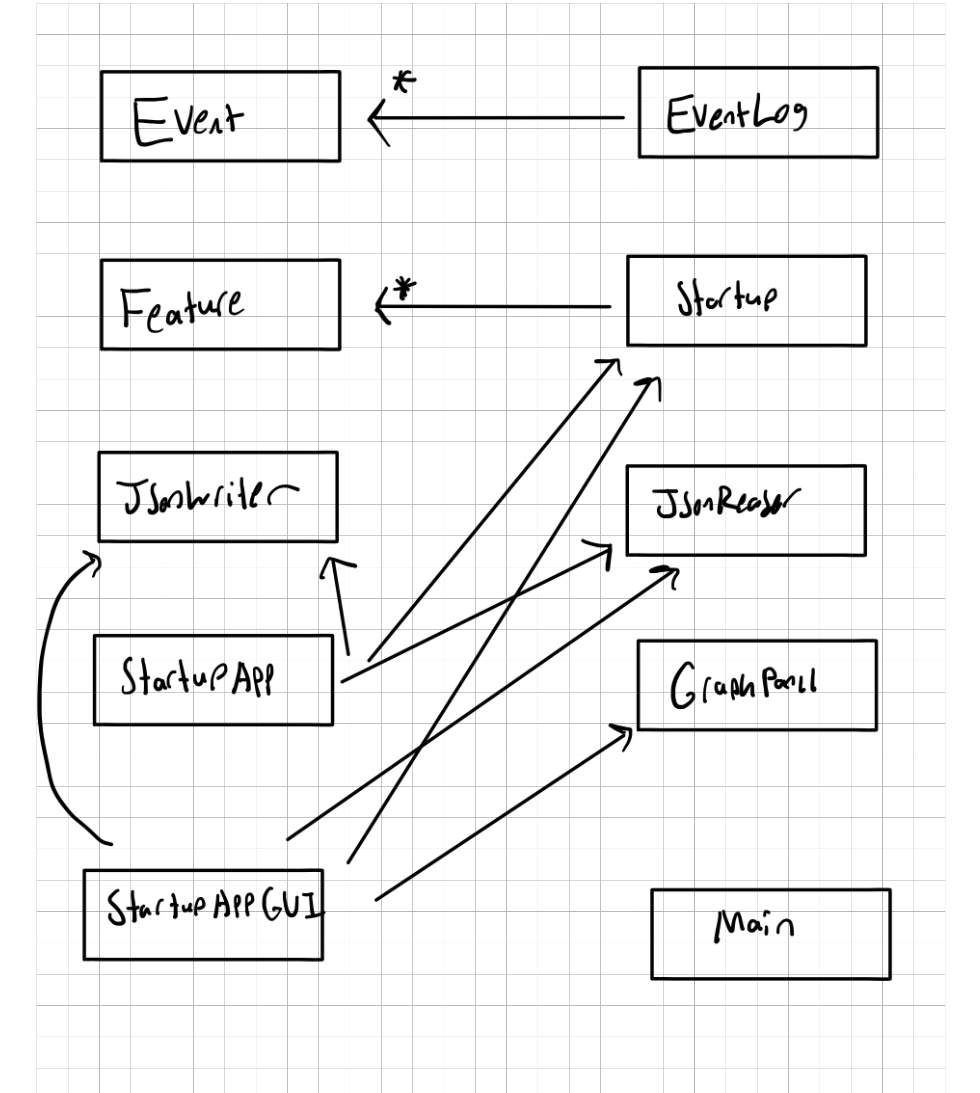 Event
*
EventLog
Feature
*
Startup
JsonWriter
JsonReader
StartupApp
GraphPanel
StartupAppGUI
Main